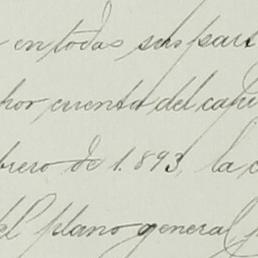 en todas sus part
por cuenta del capi
brero de 1.893, la c
del plano general,